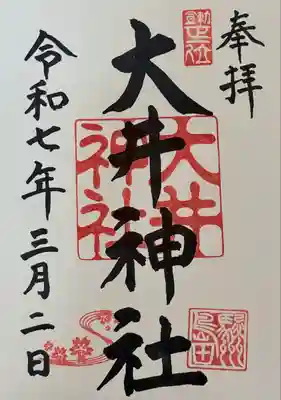 奉拝
正一位
大井神社
大井
神社
令和七年三月二日